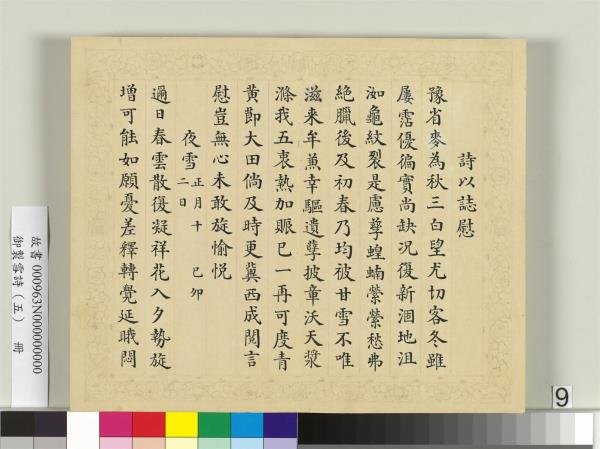 詩以誌慰
豫省麥為秋三白望尤切客冬雖
屢霑優徧實尚缺况復新涸地沮
洳龜紋裂是慮孽蝗蝻縈縈愁弗
絶臘後及初春乃均被甘雪不唯
滋来牟蕪幸驅遺孽披章沃天漿
滌我五衷熱加賑已一再可度青
黄即大田倘及時更冀西成閲言
慰豈無心未敢旋愉悦
夜雪 正月十二日 己卯
適日春雲散復凝祥花入夕勢旋
增可能如願憂差釋轉覺延眂悶
故書 000963N000000000
御製雪詩(五) 冊
9